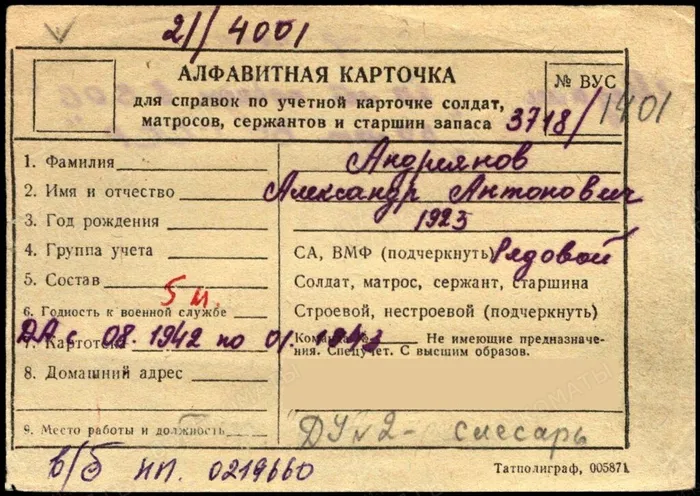 21/4001
АЛФАВИТНАЯ КАРТОЧКА
№ ВУС
для справок по учетной карточке солдат,
матросов, сержантов и старшин запаса 3718/1401
1. Фамилия Андриянов
2. Имя и отчество Александр Антонович
3. Год рождения 1923
4. Группа учета СА, ВМФ (подчеркнуть) Рядовой
5. Состав Солдат, матрос, сержант, старшина
5 м.
6. Годность к военной службе Строевой, нестроевой (подчеркнуть)
ДА с 08.1942 по 01.1943
7. Картотека Команда Не имеющие предназначе-
ния. Спецучет. С высшим образов.
8. Домашний адрес
9. Место работы и должность ДУ №2 - слесарь
в/б НП. 0219660
Татполиграф, 005871.